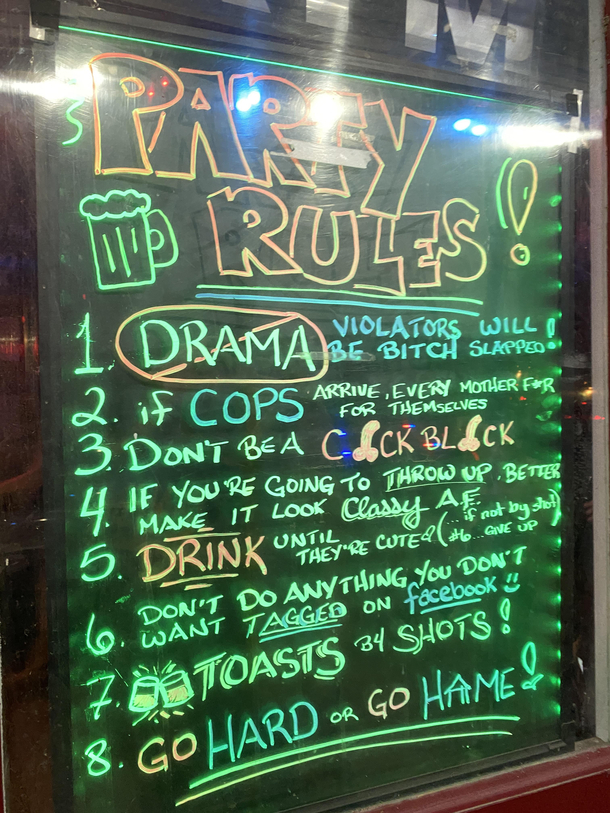 PARTY
RULES!
1. DRAMA VIOLATORS WILL
BE BITCH SLAPPED!
2. if COPS ARRIVE, EVERY MOTHER F*R
FOR THEMSELVES
3. DON'T BE A C CK BL CK
4. IF YOU'RE GOING TO THROW UP, BETTER
MAKE IT LOOK Classy A.F.
5. DRINK UNTIL
THEY'RE CUTE (... if not by shot
#6... GIVE UP)
6. DON'T DO ANYTHING YOU DON'T
WANT TAGGED ON facebook
7. TOASTS B4 SHOTS!
8. GO HARD OR GO HAME!